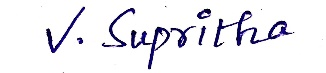 V. Supritha